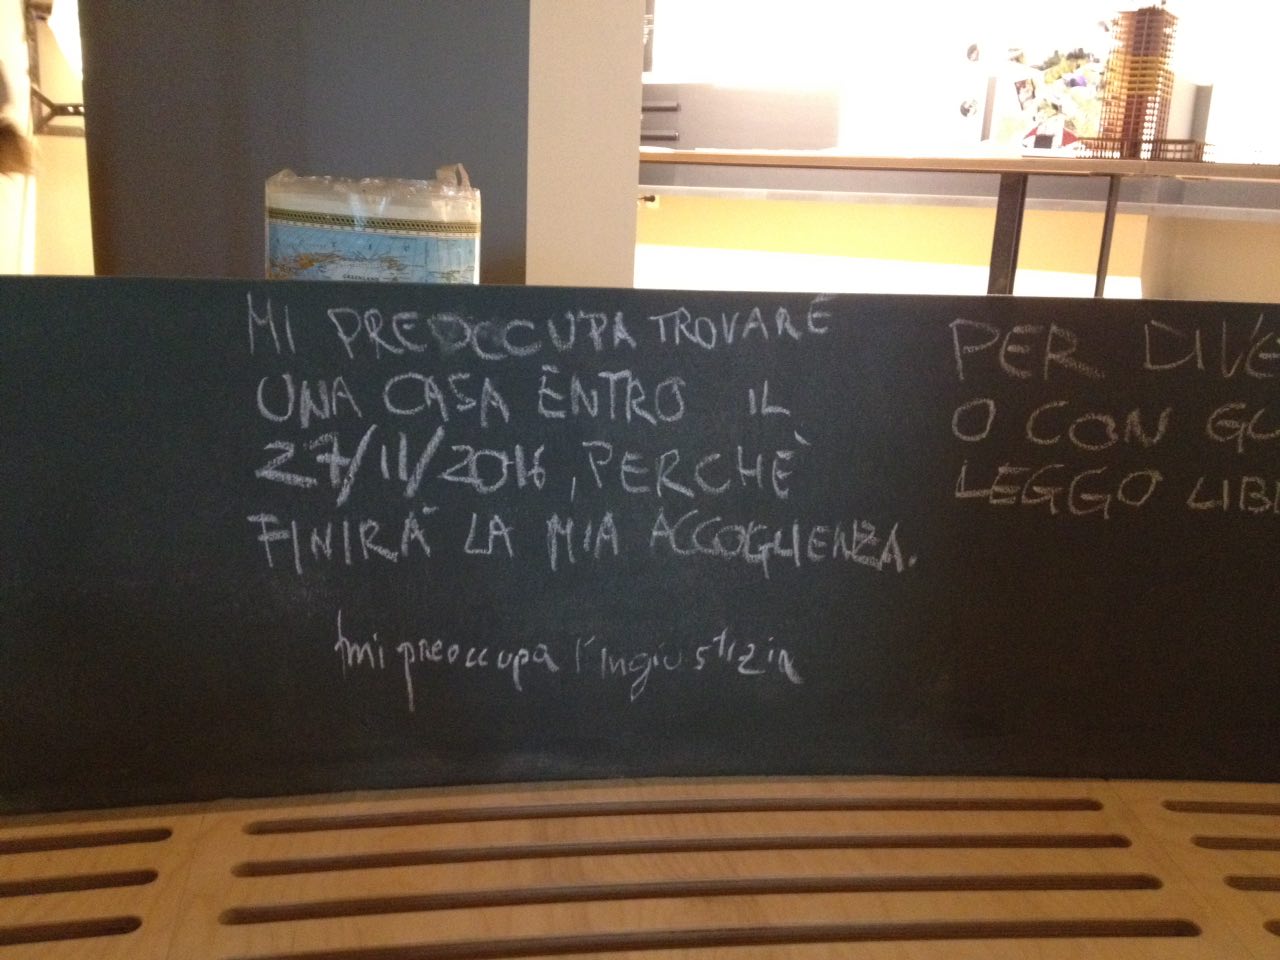 GREENLAND
MI PREOCCUPA TROVARE
UNA CASA ENTRO IL
27/11/2016, PERCHÈ
FINIRÀ LA MIA ACCOGLIENZA.
mi preoccupa l'ingiustizia
PER DIVE
O CON GO
LEGGO LIB